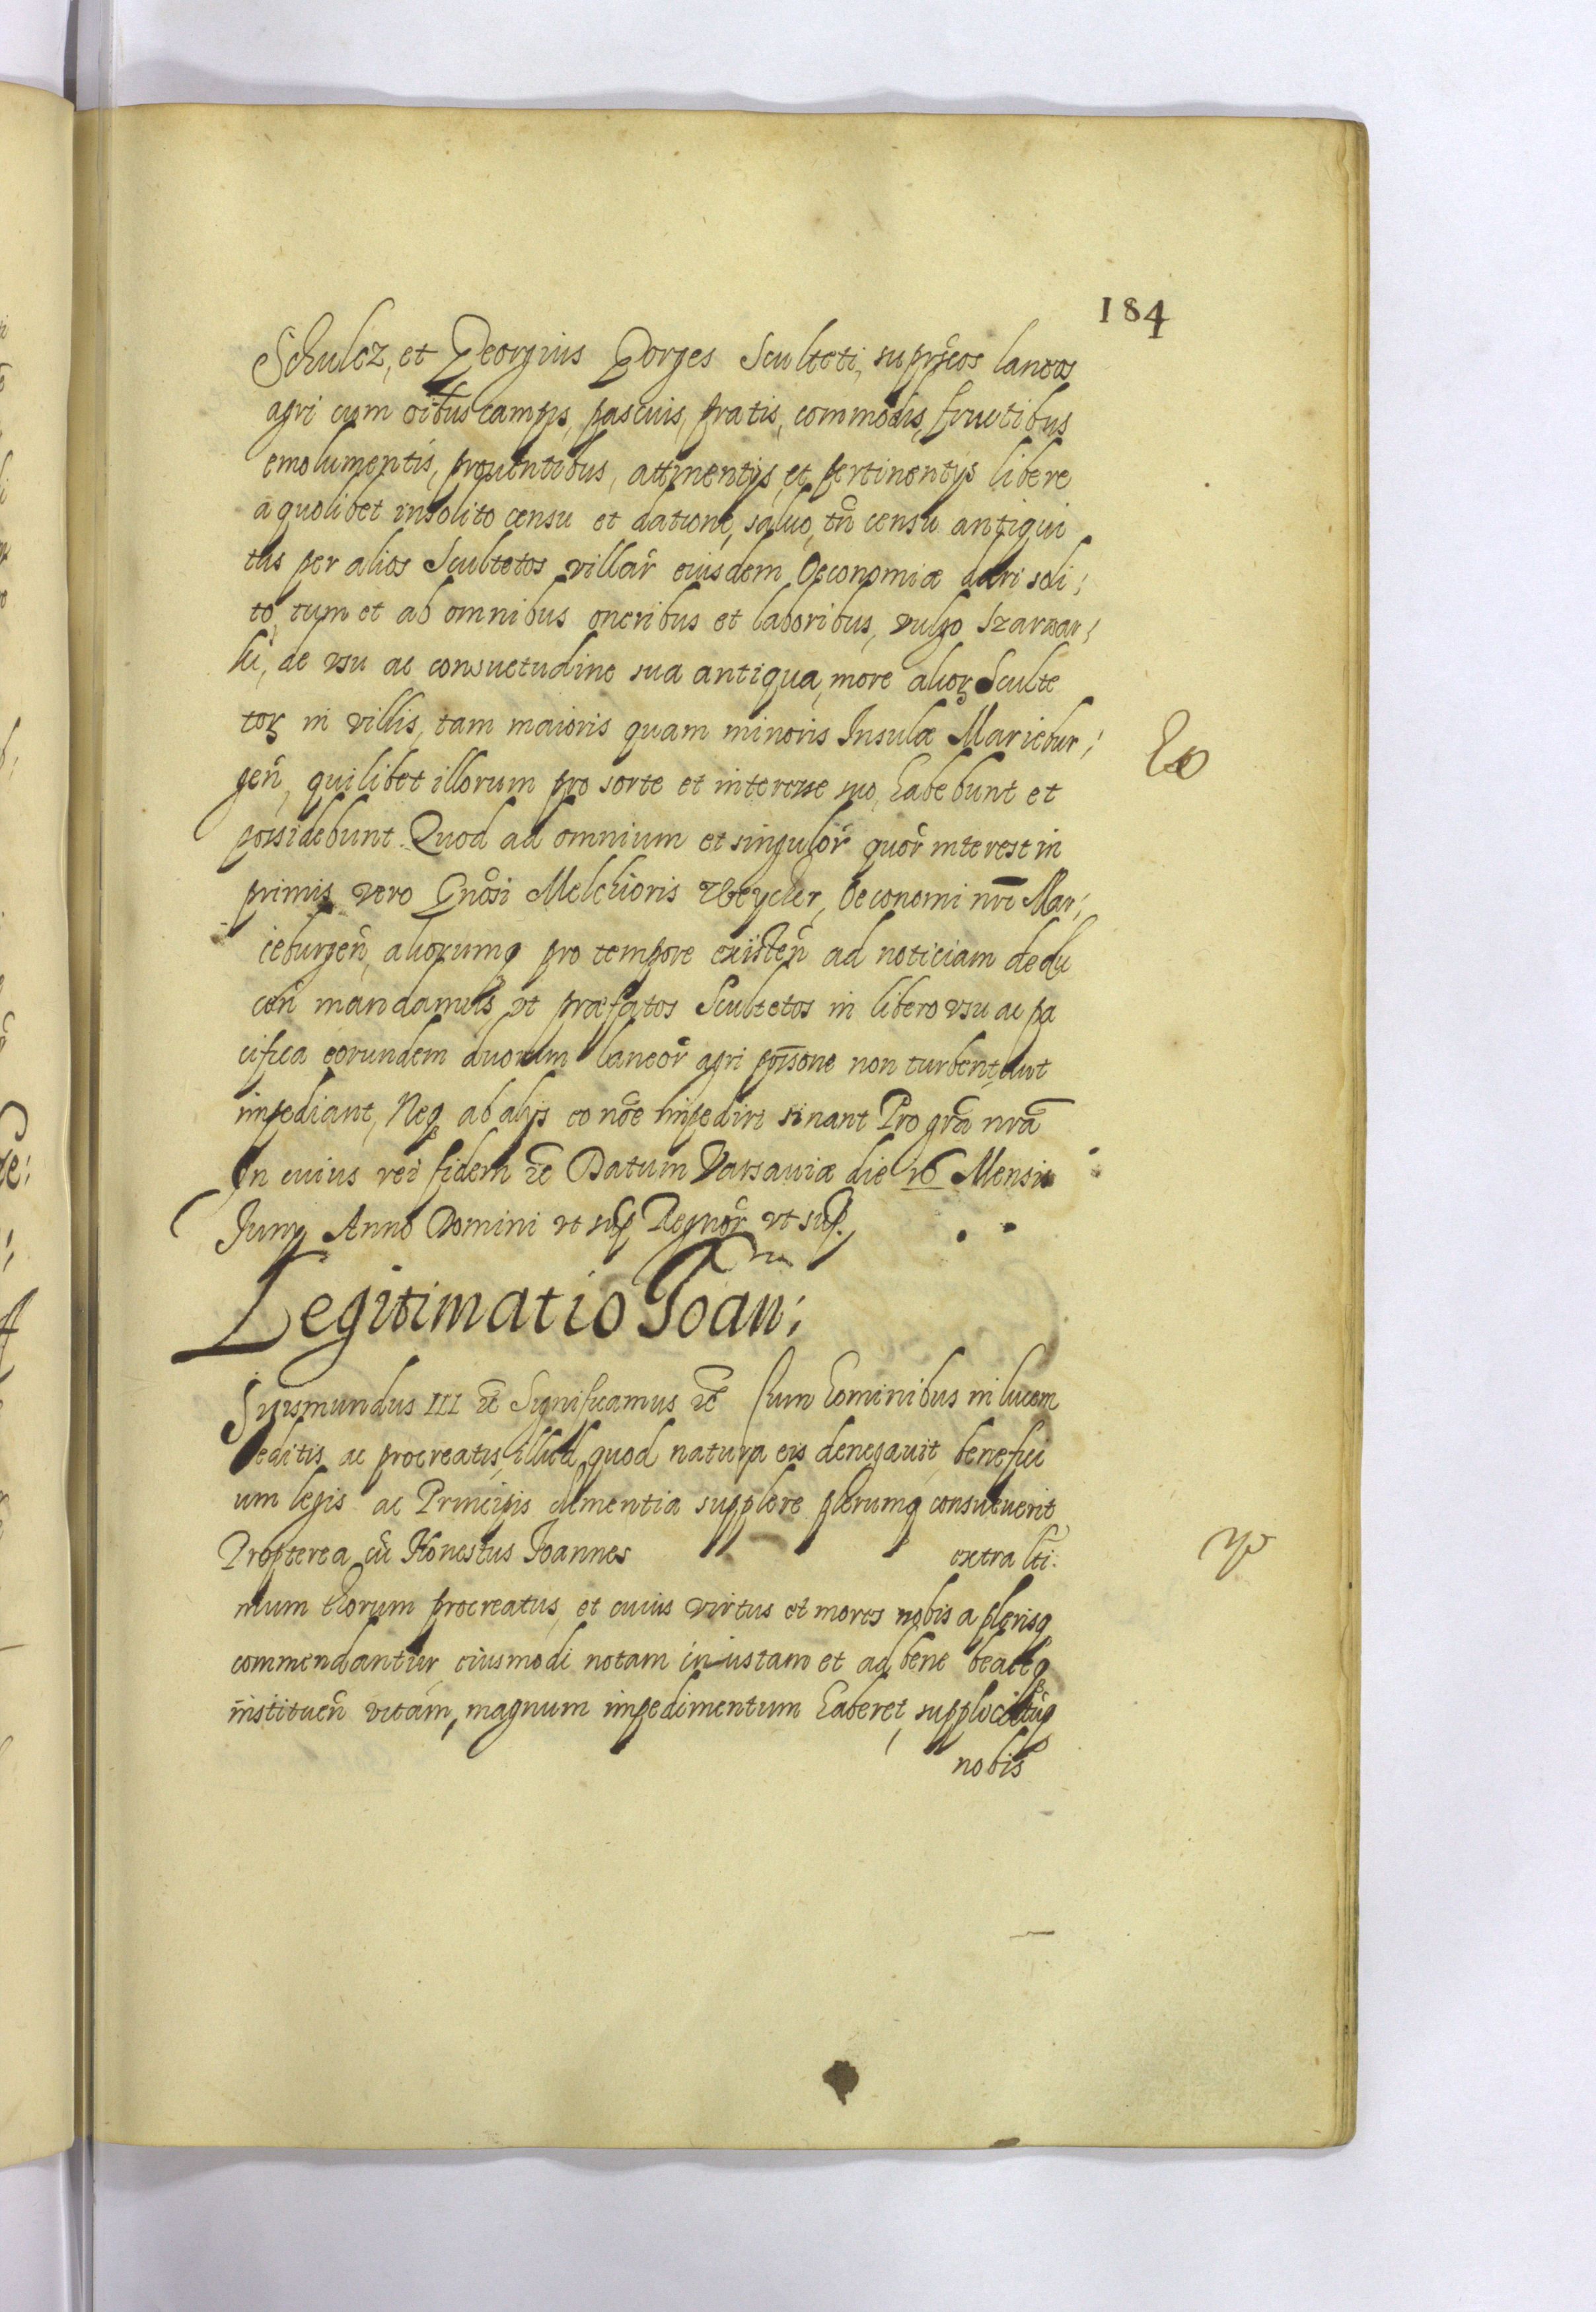 184
Schulcz, et Georgius Gorges Sculteti, suprãcos laneos
agri cum oibus campis, pascuis, pratis, commodis, fructibus
emolumentis, prouentibus, attinentijs et pertinentijs libere
a quolibet insolito censu et datione, saluo, tñ censu antiqui
tus per alios Scultetos villar̃ eiusdem Oeconomiæ dari soli;
to, tum et ab omnibus oneribus et laboribus, vulgo Szarwar;
ki, de vsu ac consuetudine sua antiqua, more alioꝝ Sculte
toꝝ in villis, tam maioris quam minoris Insulæ Mariebur;
geñ, quilibet illorum pro sorte et interesse suo, habebunt et
possidebunt. Quod ad omnium et singulor̃ quor̃ interest in
primis vero Gnõsi Melchioris Weycher, Oeconomi nrĩ Mar;
ieburgeñ, aliorumq pro tempore existeñ ad noticiam dedu
ceñ mandamus, vt præfatos Scultetos in libero vsu ac pa
cifica eorundem duorum laneor̃ agri possõne non turbent, aut
impediant, Neq ab alijs eo nõe impediri sinant Pro grã nrã
In cuius rei fidem ꝛc Datum Varsauiæ die 16 Mensis
Junij Anno Domini vt sup Regnor̃ vt sup.
Legitimatio Joan;
Sigismundus III ꝛc Significamus ꝛc Cum hominibus in lucem
editis ac procreatis, illud quod natura eis denegauit, benefici
um legis ac Principis clementia supplere plerumq consueuerit
Propterea cũ Honestus Joannes extra lti.
mum thorum procreatus, et cuius virtus et mores nobis a plerisq
commendantur, eiusmodi notam iniustam et ad bene beateq
institueñ vitam, magnum impedimentum haberet,
nobis